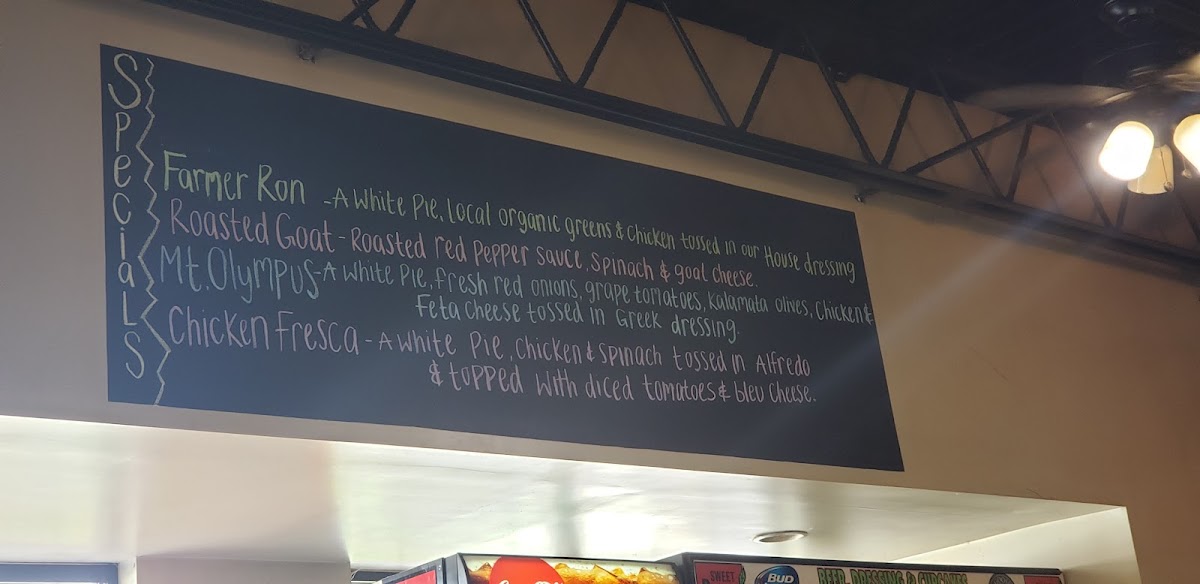 Specials
Farmer Ron - A White Pie, Local organic greens & Chicken tossed in our House dressing
Roasted Goat - Roasted red pepper sauce, Spinach & goat cheese.
Mt. Olympus - A White Pie, fresh red onions, grape tomatoes, kalamata olives, Chicken &
Feta Cheese tossed in Greek dressing.
Chicken Fresca - A White Pie, Chicken & Spinach tossed in Alfredo
& topped with diced tomatoes & bleu cheese.
SWEET
BUD
BEER, DRESSING & CUPCAKES